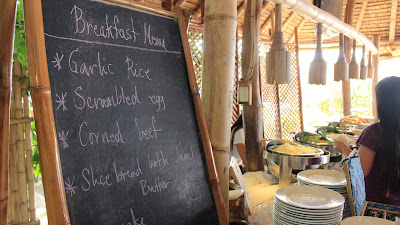 Breakfast Menu
* Garlic Rice
* Scrambled egg
* Corned beef
* Slice bread with Jam/
Butter